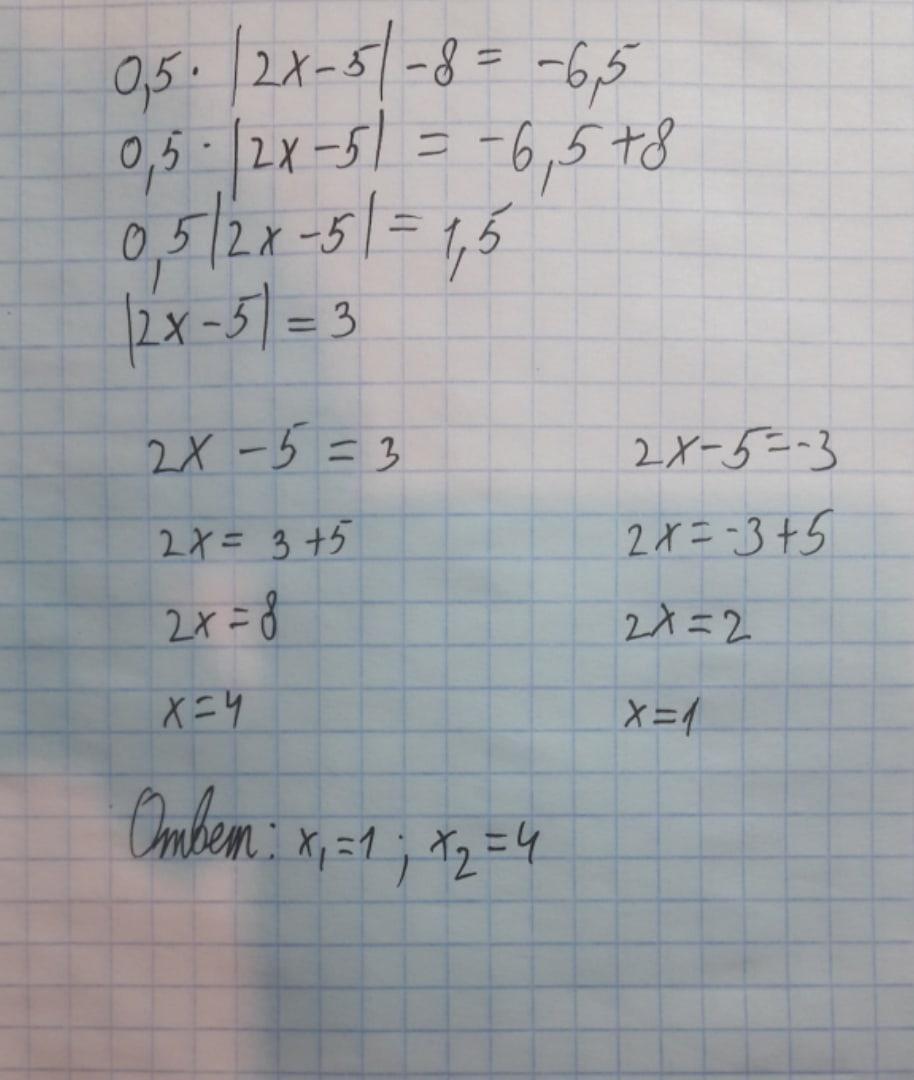 0,5 · |2x-5| -8 = -6,5
0,5 · |2x-5| = -6,5+8
0,5|2x-5| = 1,5
|2x-5| = 3
2x -5 = 3
2x-5=-3
2x = 3+5
2x=-3+5
2x=8
2x=2
x=4
x=1
Ответ: x₁=1 ; x₂=4